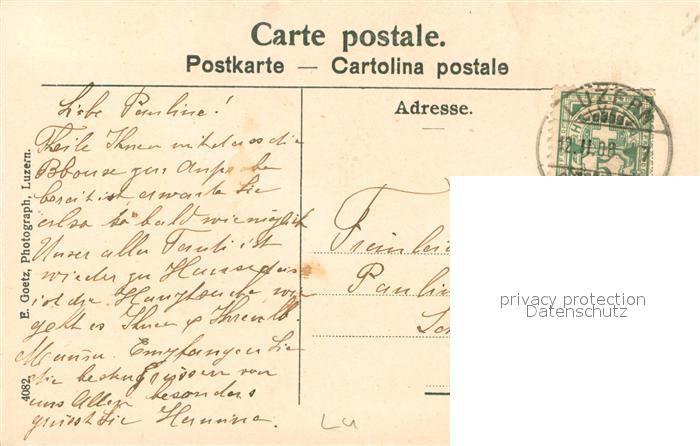 Carte postale.
Postkarte — Cartolina postale
Adresse.
LUZERN
12.II.09 - 7
E. Goetz, Photograph, Luzern.
4082
Liebe Pauline!
Theile Ihnen mit dass die
Blouse zur Anprobe
bereit ist erwarte Sie
also so bald wie möglich
Unser alla Tanti ist
wieder zu Hause das
ist die Hauptsache wie
geht es Ihnen & Ihren lb.
Mamma. Empfangen Sie
die besten Grüssen von
uns Allen besonders
grüsst Sie Hermina.
Fräulein
Paulin
privacy protection
Datenschutz
Lu